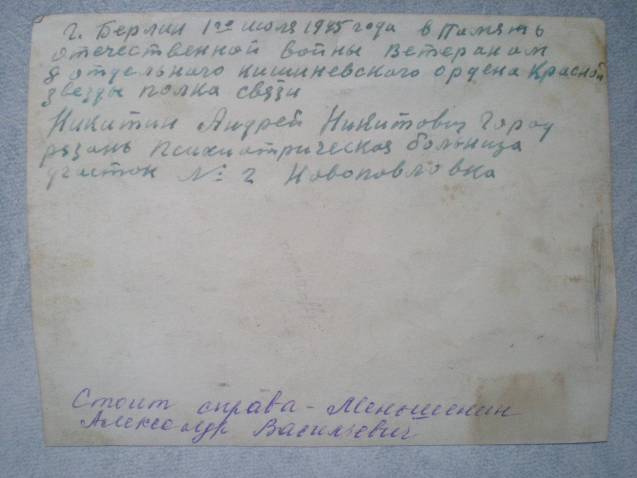 г. Берлин 1го июля 1945 года в Память
отечественной войны Ветеранам
8 отдельного кишиневского ордена Красной
звезды полка связи
Никитин Андрей Никитович Город
рязань психиатрическая больница
участок № 2 Новопавловка
Стоит справа - Меньшенин
Александр Васильевич